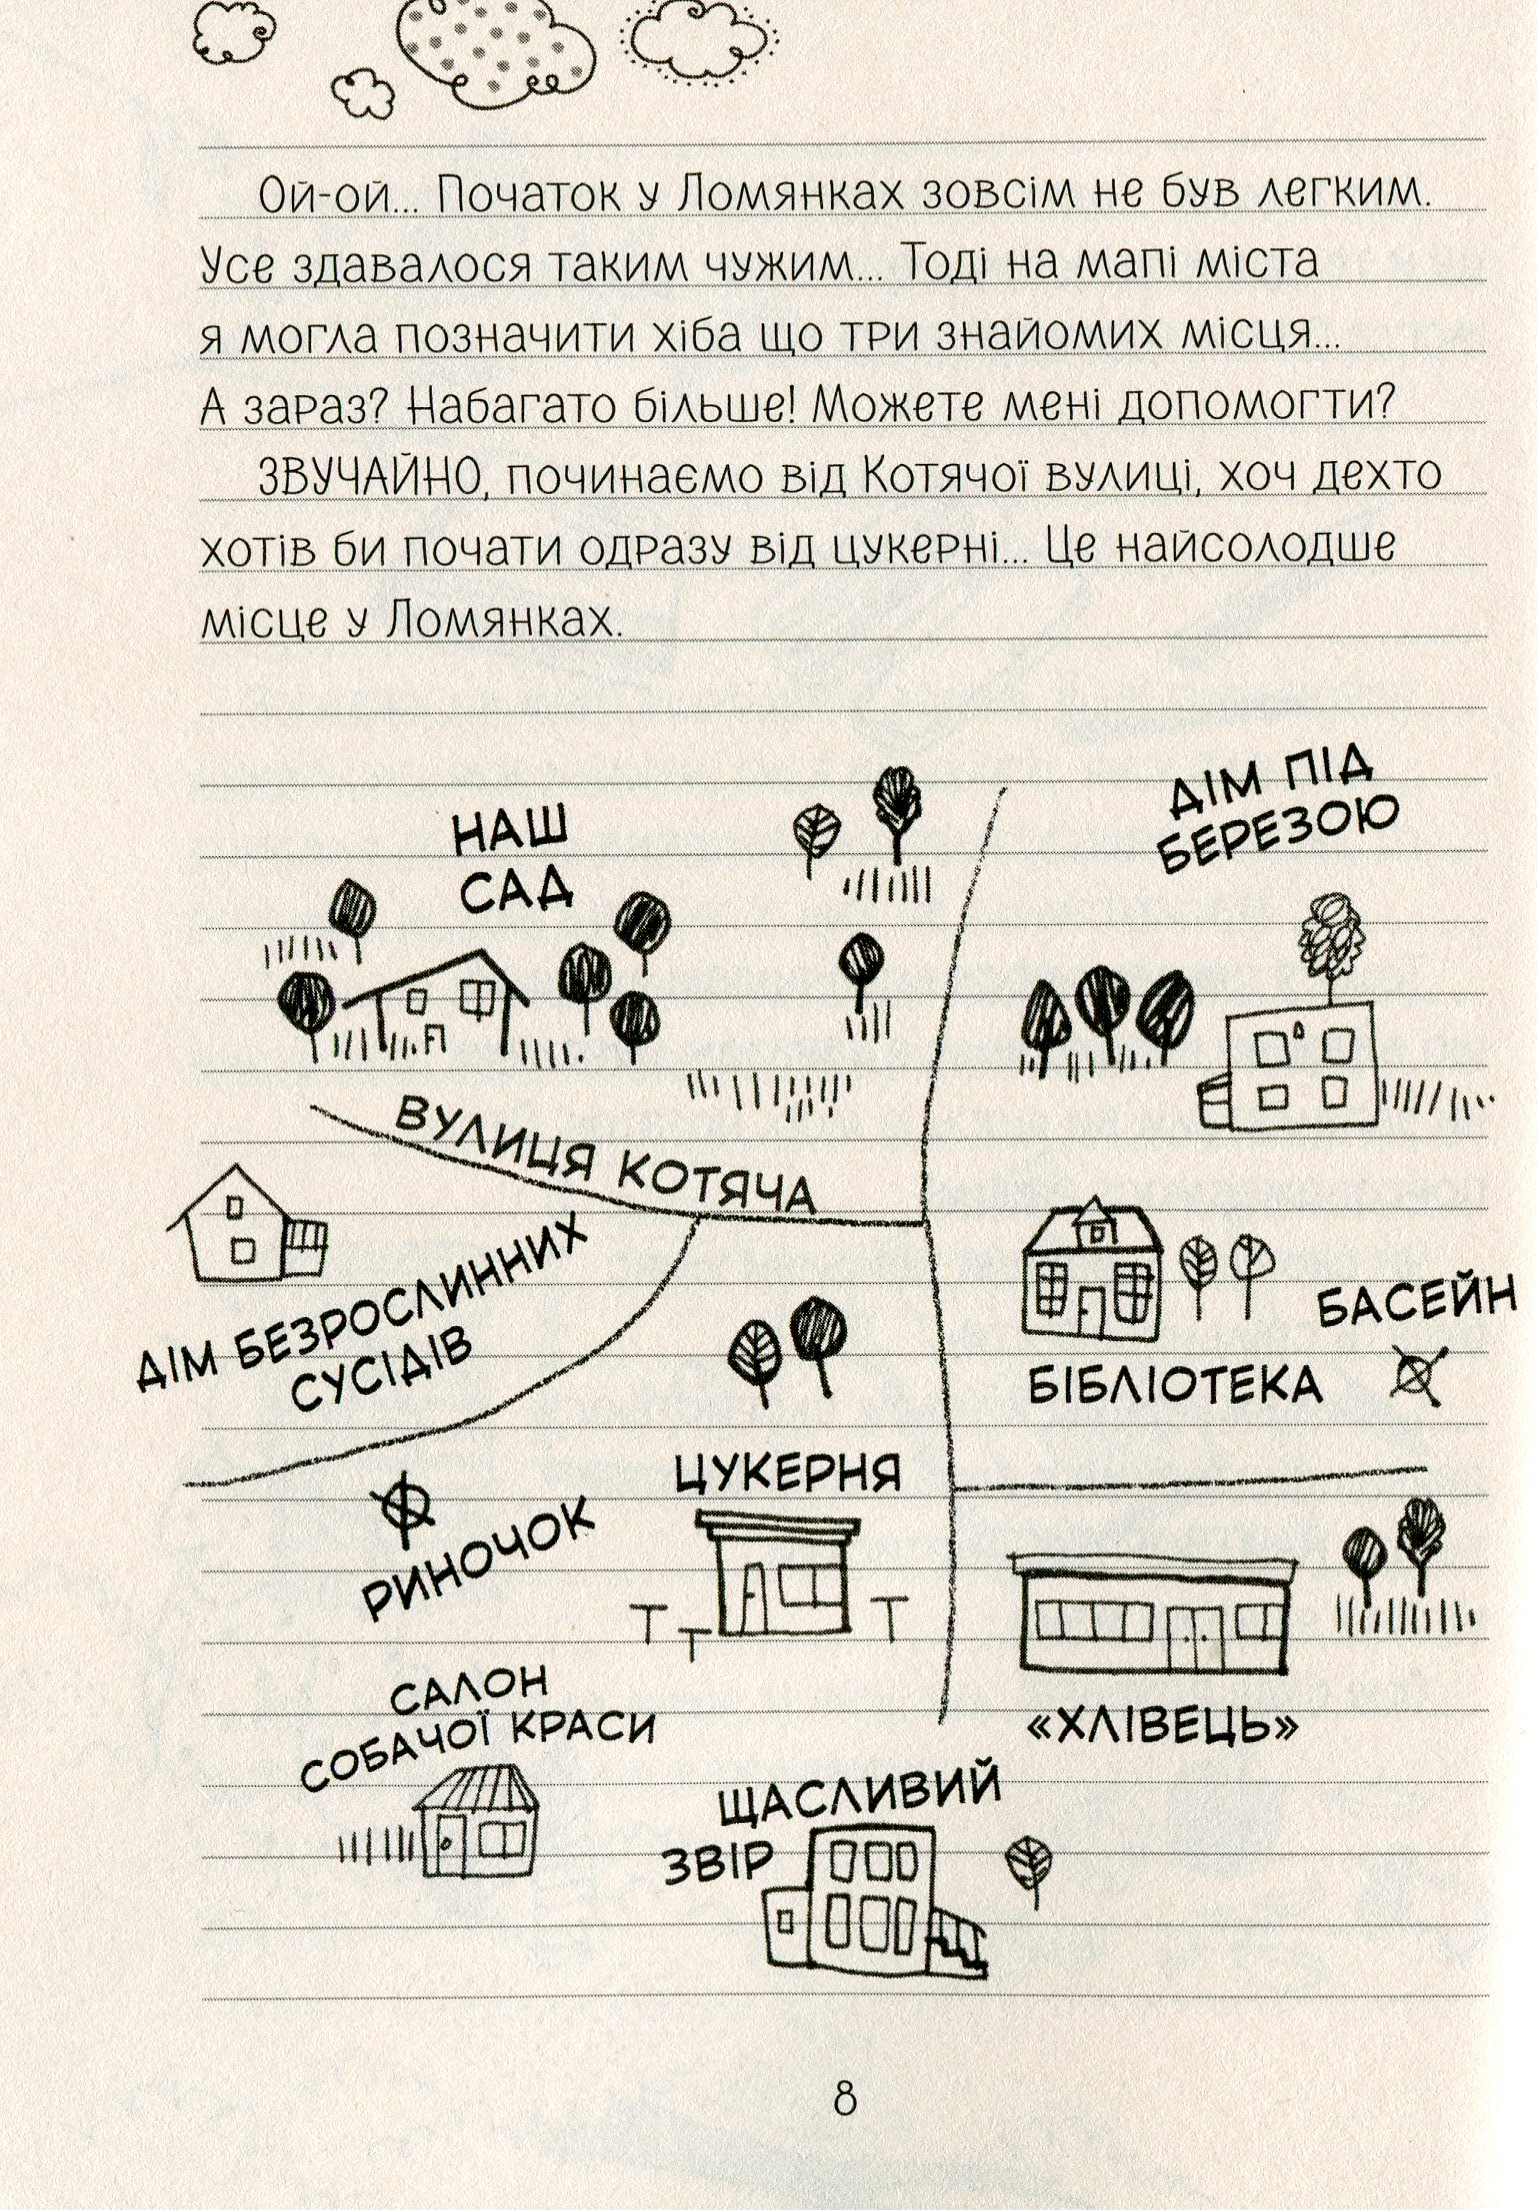 Ой-ой... Початок у Ломянках зовсім не був легким.
Усе здавалося таким чужим... Тоді на мапі міста
я могла позначити хіба що три знайомих місця...
А зараз? Набагато більше! Можете мені допомогти?
ЗВУЧАЙНО, починаємо від Котячої вулиці, хоч дехто
хотів би почати одразу від цукерні... Це найсолодше
місце у Ломянках.
ДІМ ПІД
БЕРЕЗОЮ
НАШ
САД
ВУЛИЦЯ КОТЯЧА
ДІМ БЕЗРОСЛИННИХ
СУСІДІВ
БАСЕЙН
БІБЛІОТЕКА
ЦУКЕРНЯ
РИНОЧОК
САЛОН
СОБАЧОЇ КРАСИ
«ХЛІВЕЦЬ»
ЩАСЛИВИЙ
ЗВІР
8